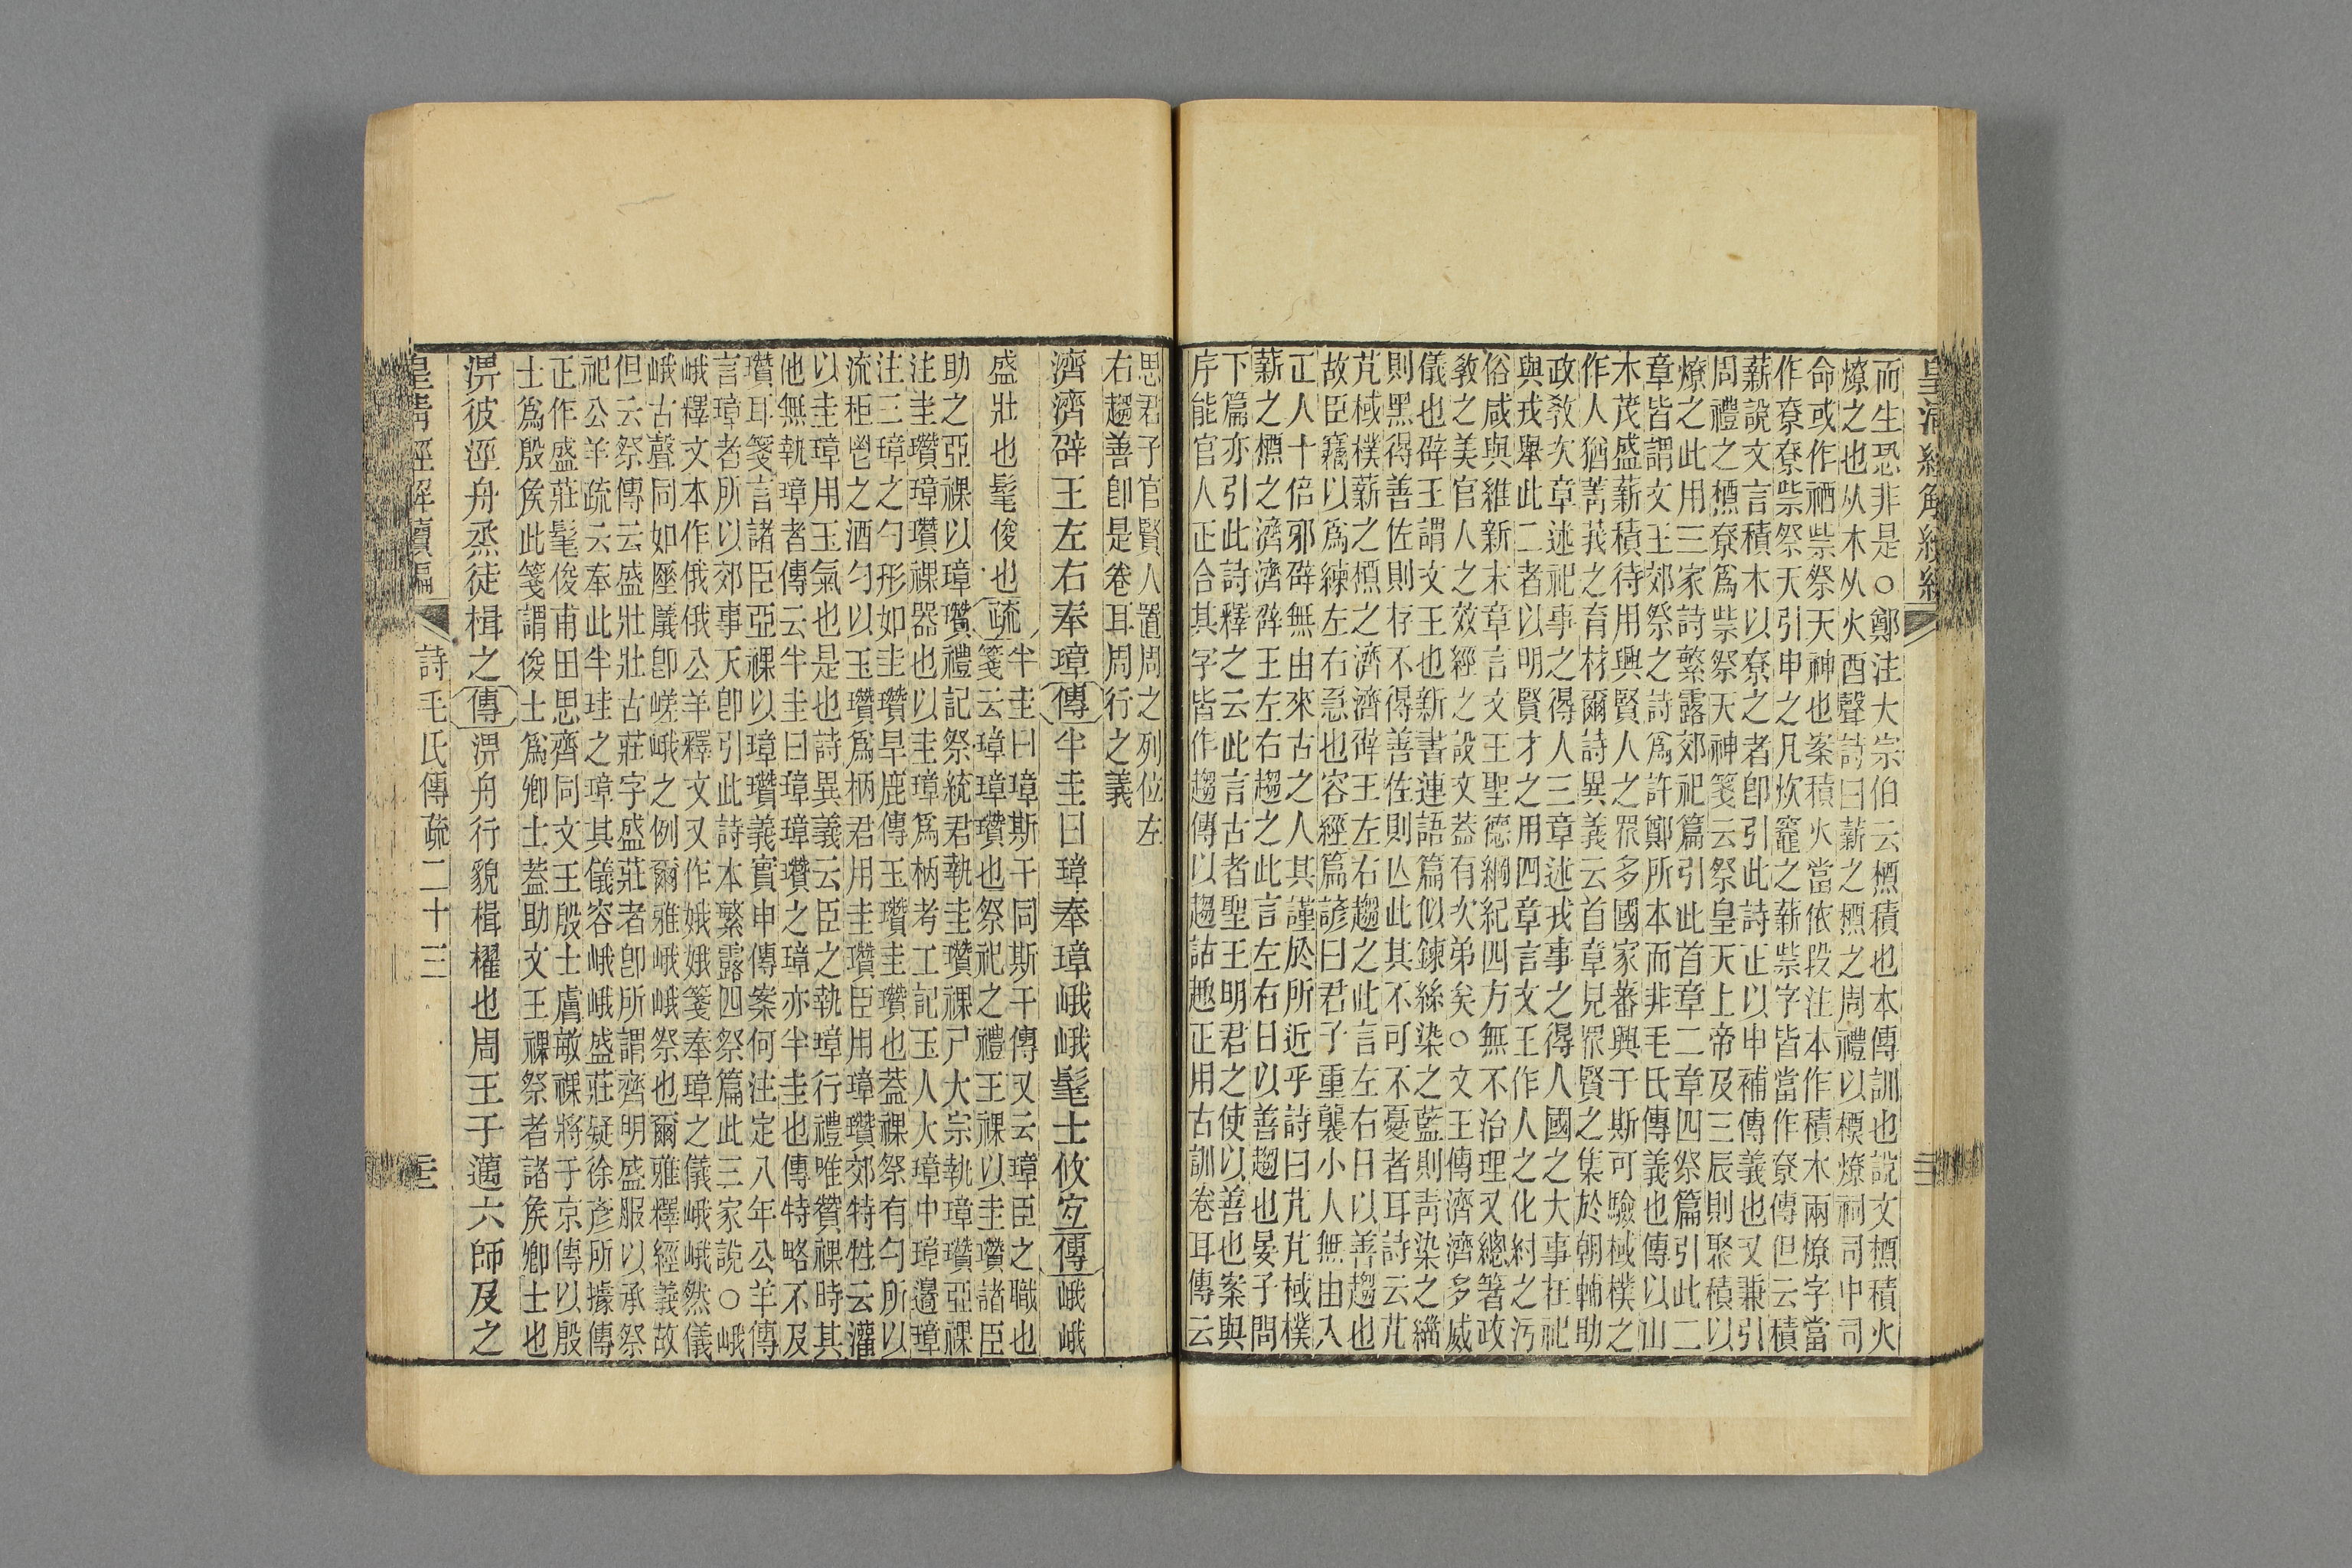 而生恐非是○鄭注大宗伯云槱積也本傳訓也說文槱積火
燎之也从木从火酉聲詩曰薪之槱之周禮以槱燎祠司中司
命或作禉祡祭天神也案積火當依段注本作積木兩燎字當
作尞尞祡祭天引申之凡炊竈之薪祡字皆當作尞傳但云積
薪說文言積木以尞之者卽引此詩正以申補傳義也又兼引
周禮之槱尞爲祡祭天神箋云祭皇天上帝及三辰則聚積以
燎之此用三家詩繁露郊祀篇引此首章二章四祭篇引此二
章皆謂文王郊祭之詩爲許鄭所本而非毛氏傳義也傳以山
木茂盛薪積待用興賢人之眾多國家蕃興于斯可驗棫樸之
作人猶菁莪之育材爾詩異義云首章見眾賢之集於朝輔助
政敎次章述祀事之得人三章述戎事之得人國之大事在祀
與戎舉此二者以明賢才之用四章言文王作人之化紂之汚
俗咸與維新末章言文王聖德綱紀四方無不治理又總箸政
敎之美官人之效經之設文蓋有次弟矣○文王傳濟濟多威
儀也辟王謂文王也新書連語篇似鍊絲染之藍則靑染之緇
則黑得善佐則存不得善佐則亾此其不可不憂者耳詩云芃
芃棫樸薪之槱之濟濟辟王左右趨之此言左右日以善趨也
故臣竊以爲練左右急也容經篇諺曰君子重襲小人無由入
正人十倍邪辟無由來古之人其謹於所近乎詩曰芃芃棫樸
薪之槱之濟濟辟王左右趨之此言左右日以善趨也晏子問
下篇亦引此詩釋之云此言古者聖王明君之使以善也案與
序能官人正合其字皆作趨傳以趨詁趣正用古訓卷耳傳云
思君子官賢人置周之列位左
右趨善卽是卷耳周行之義
濟濟辟王左右奉璋傳半圭曰璋奉璋峨峨髦士攸宜傳峨峨
盛壯也髦俊也疏半圭曰璋斯干同斯干傳又云璋臣之職也
箋云璋璋瓚也祭祀之禮王祼以圭瓚諸臣
助之亞祼以璋瓚禮記祭統君執圭瓚祼尸大宗執璋瓚亞祼
注圭瓚璋瓚祼器也以圭璋爲柄考工記玉人大璋中璋邊璋
注三璋之勺形如圭瓚旱鹿傳玉瓚圭瓚也蓋祼祭有勺所以
流秬鬯之酒勺以玉瓚爲柄君用圭瓚臣用璋瓚郊特牲云灌
以圭璋用玉氣也是也詩異義云臣之執璋行禮唯贊祼時其
他無執璋者傳云半圭曰璋璋瓚之璋亦半圭也傳特略不及
瓚耳箋言諸臣亞祼以璋瓚義實申傳案何注定八年公羊傳
言璋者所以郊事天卽引此詩本繁露四祭篇此三家說○峨
峨釋文本作俄俄公羊釋文又作娥娥箋奉璋之儀峨峨然儀
峨古聲同如厜㕒卽嵯峨之例爾雅峨峨祭也爾雅釋經義故
但云祭傳云盛壯壯古莊字盛莊者卽所謂齊明盛服以承祭
祀公羊疏云奉此半珪之璋其儀容峨峨盛莊疑徐彥所據傳
正作盛莊髦俊甫田思齊同文王殷士膚敏祼將于京傳以殷
士爲殷矦此箋謂俊士爲卿士蓋助文王祼祭者諸矦卿士也
淠彼涇舟烝徒楫之傳淠舟行貌楫櫂也周王于邁六師及之
詩毛氏傳疏二十三